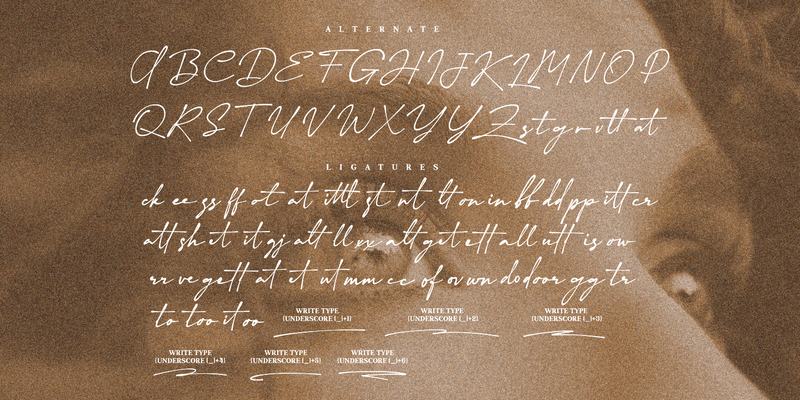 ALTERNATE
A B C D E F G H I J K L M N O P
Q R S T U V W X Y Y Z s t g r v tt at
LIGATURES
ck ee gs ff ot at ittl st nt lt on in bb dd pp itt cr
att sh et it gj alt ll xx alt get ett all utt is ow
rr ve gett at et ut mm cc of ov wn do door gg tr
to too it oo
WRITE TYPE WRITE TYPE WRITE TYPE
(UNDERSCORE (_)+1) (UNDERSCORE (_)+2) (UNDERSCORE (_)+3)
WRITE TYPE WRITE TYPE WRITE TYPE
(UNDERSCORE (_)+4) (UNDERSCORE (_)+5) (UNDERSCORE (_)+6)